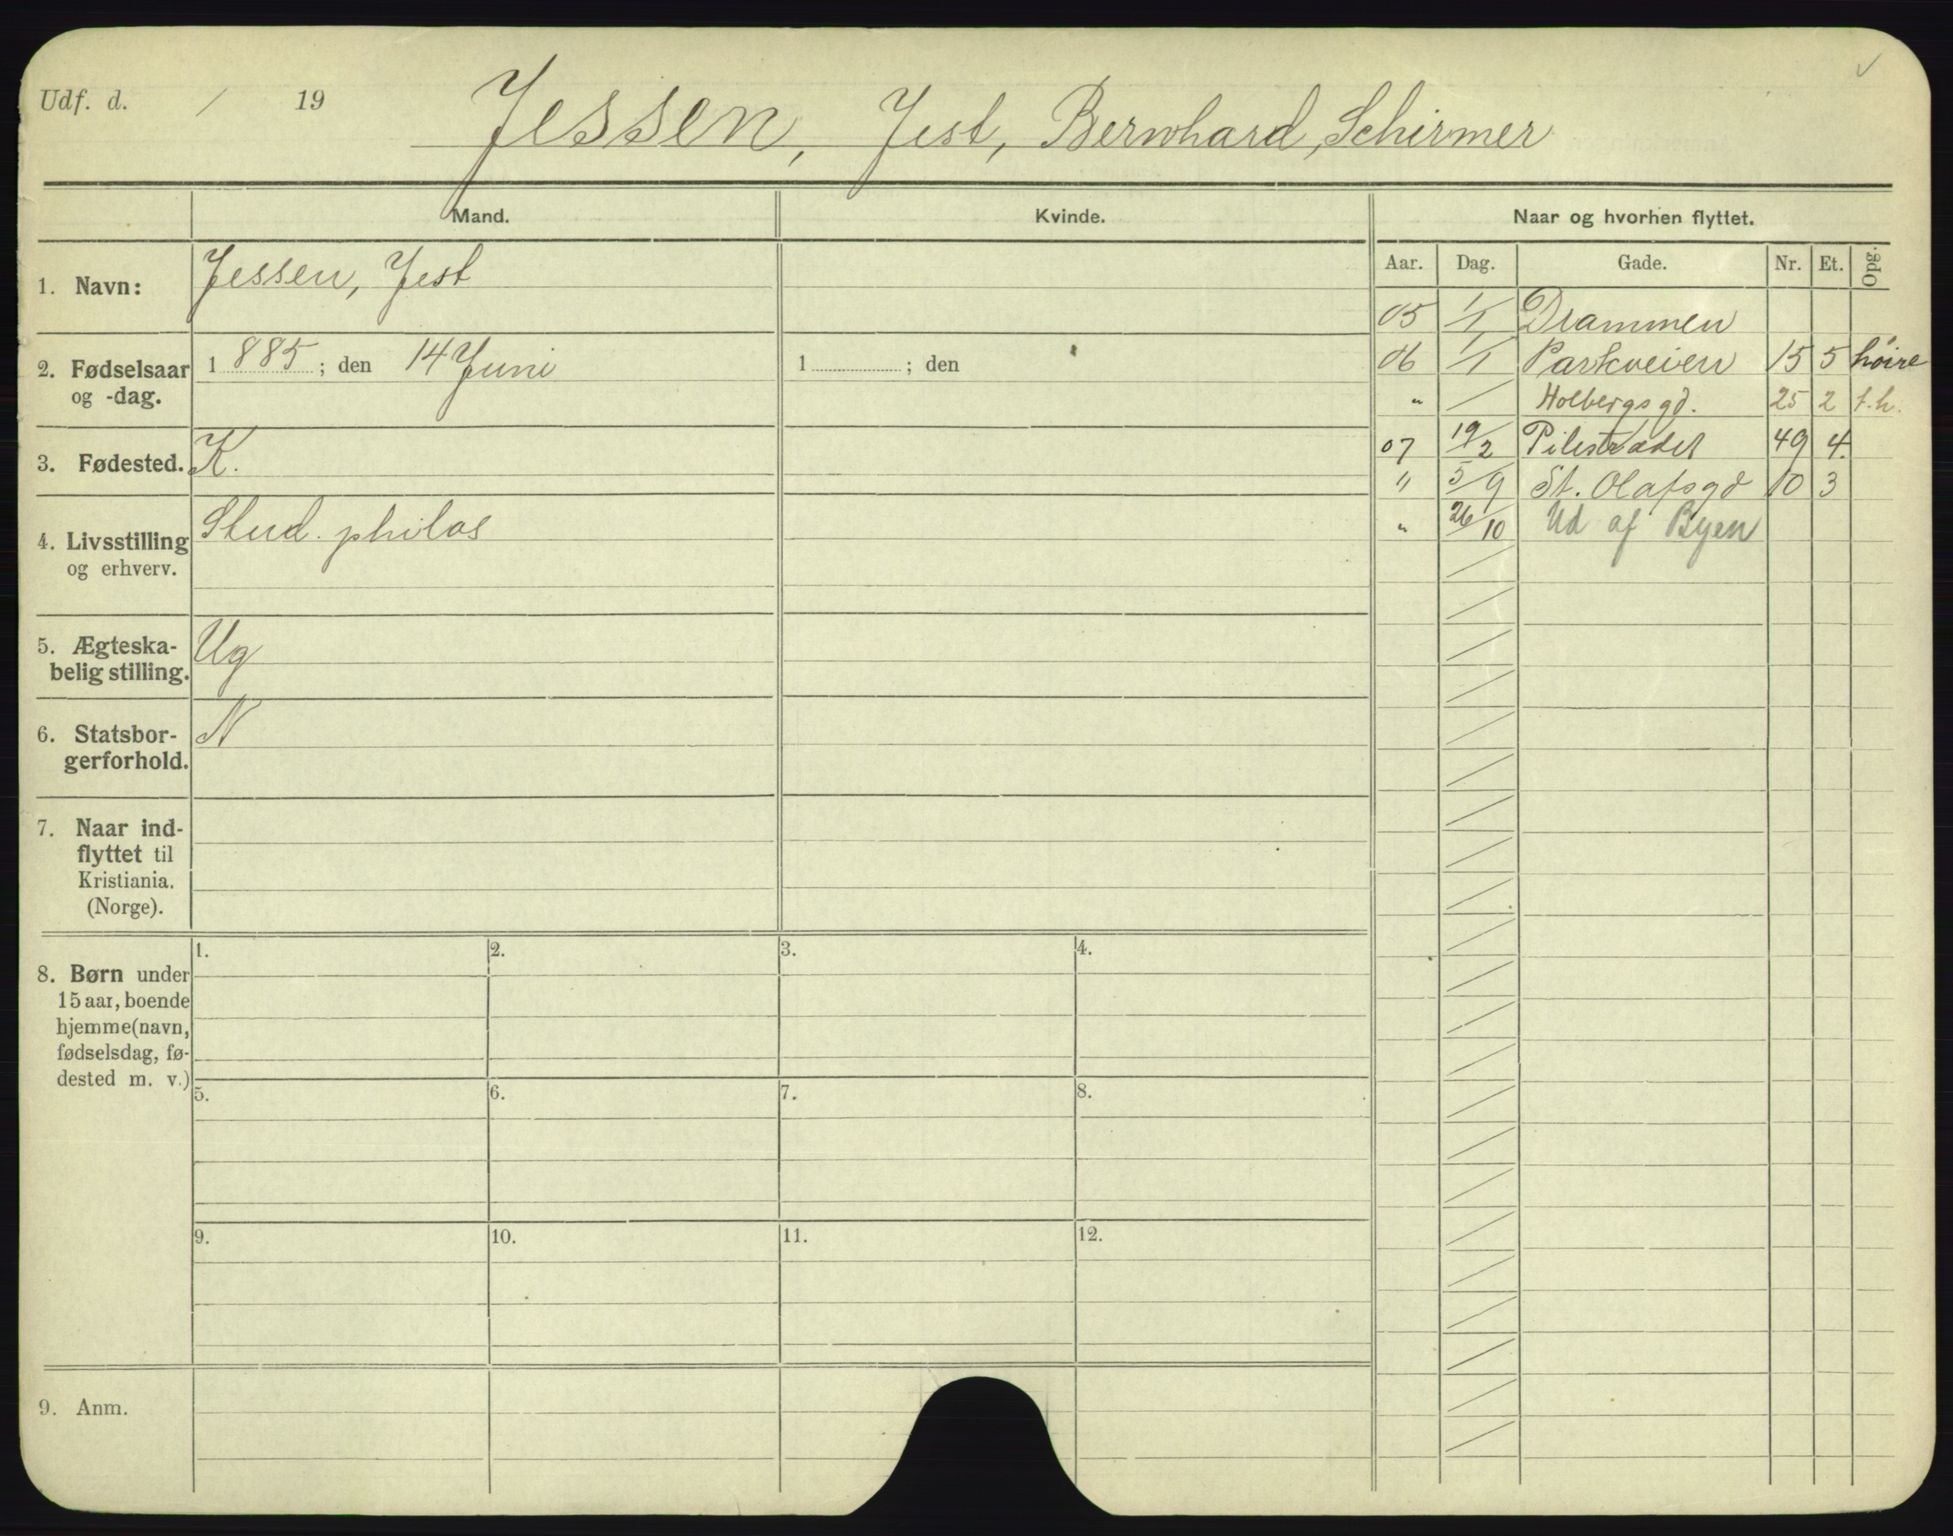 Udf. d. / 19 Jessen, Jest, Bernhard, Schirmer
Mand. Kvinde. Naar og hvorhen flyttet.
Aar. Dag. Gade. Nr. Et. Opg.
1. Navn: Jessen, Jest
2. Fødselsaar og -dag. 1 885 ; den 14 Juni
1 ; den
3. Fødested. K.
4. Livsstilling og erhverv. Stud. philos
5. Ægteska-
belig stilling. Ug
6. Statsbor-
gerforhold. N
7. Naar ind-
flyttet til
Kristiania.
(Norge).
8. Børn under
15 aar, boende
hjemme (navn,
fødselsdag, fø-
dested m. v.)
1. 2. 3. 4.
5. 6. 7. 8.
9. 10. 11. 12.
9. Anm.
05 1/1 Drammen
06 1/1 Parkveien 15 5 høire
" / Holbergs gd. 25 2 t.h.
07 19/2 Pilestrædet 49 4.
" 5/9 St. Olafsgd 10 3
" 26/10 Ud af Byen